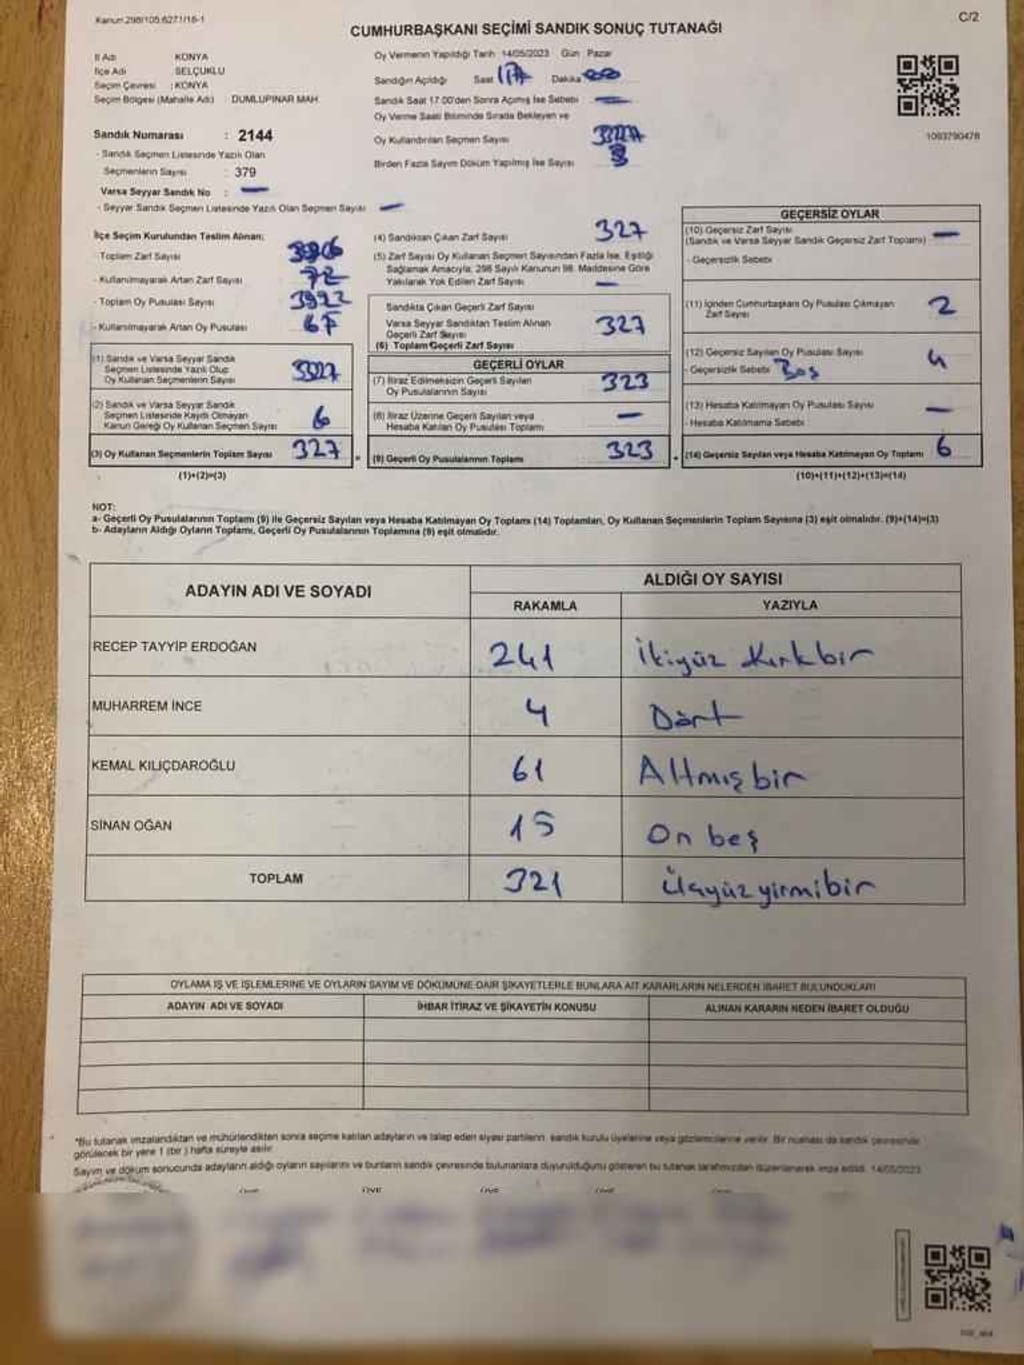 Kanun 298/105 6271/16-1
C/2
CUMHURBAŞKANI SEÇİMİ SANDIK SONUÇ TUTANAĞI
İl Adı : KONYA
İlçe Adı : SELÇUKLU
Seçim Çevresi : KONYA
Seçim Bölgesi (Mahalle Adı) DUMLUPINAR MAH.
Sandık Numarası : 2144
- Sandık Seçmen Listesinde Yazılı Olan
Seçmenlerin Sayısı : 379
Varsa Seyyar Sandık No : —
- Seyyar Sandık Seçmen Listesinde Yazılı Olan Seçmen Sayısı —
Oy Vermenin Yapıldığı Tarih 14/05/2023 Gün : Pazar
Sandığın Açıldığı Saat Dakika
Sandık Saat 17.00'den Sonra Açılmış İse Sebebi —
Oy Verme Saati Bitiminde Sırada Bekleyen ve
Oy Kullandırılan Seçmen Sayısı
Birden Fazla Sayım Döküm Yapılmış İse Sayısı
1093790478
İlçe Seçim Kurulundan Teslim Alınan:
- Toplam Zarf Sayısı
- Kullanılmayarak Artan Zarf Sayısı 72
- Toplam Oy Pusulası Sayısı
- Kullanılmayarak Artan Oy Pusulası
(1) Sandık ve Varsa Seyyar Sandık
Seçmen Listesinde Yazılı Olup
Oy Kullanan Seçmenlerin Sayısı
(2) Sandık ve Varsa Seyyar Sandık
Seçmen Listesinde Kaydı Olmayan
Kanun Gereği Oy Kullanan Seçmen Sayısı 6
(3) Oy Kullanan Seçmenlerin Toplam Sayısı 327
(1)+(2)=(3)
(4) Sandıktan Çıkan Zarf Sayısı 327
(5) Zarf Sayısı Oy Kullanan Seçmen Sayısından Fazla İse, Eşitliği
Sağlamak Amacıyla; 298 Sayılı Kanunun 98. Maddesine Göre
Yakılarak Yok Edilen Zarf Sayısı —
Sandıkta Çıkan Geçerli Zarf Sayısı
Varsa Seyyar Sandıktan Teslim Alınan
Geçerli Zarf Sayısı 327
(6) Toplam Geçerli Zarf Sayısı
GEÇERLİ OYLAR
(7) İtiraz Edilmeksizin Geçerli Sayılan
Oy Pusulalarının Sayısı 323
(8) İtiraz Üzerine Geçerli Sayılan veya
Hesaba Katılan Oy Pusulası Toplamı —
(9) Geçerli Oy Pusulalarının Toplamı 323
GEÇERSİZ OYLAR
(10) Geçersiz Zarf Sayısı
(Sandık ve Varsa Seyyar Sandık Geçersiz Zarf Toplamı) —
- Geçersizlik Sebebi
(11) İçinden Cumhurbaşkanı Oy Pusulası Çıkmayan
Zarf Sayısı 2
(12) Geçersiz Sayılan Oy Pusulası Sayısı 4
- Geçersizlik Sebebi Boş
(13) Hesaba Katılmayan Oy Pusulası Sayısı —
- Hesaba Katılmama Sebebi
(14) Geçersiz Sayılan veya Hesaba Katılmayan Oy Toplamı 6
(10)+(11)+(12)+(13)=(14)
NOT:
a- Geçerli Oy Pusulalarının Toplamı (9) ile Geçersiz Sayılan veya Hesaba Katılmayan Oy Toplamı (14) Toplamları, Oy Kullanan Seçmenlerin Toplam Sayısına (3) eşit olmalıdır. (9)+(14)=(3)
b- Adayların Aldığı Oyların Toplamı, Geçerli Oy Pusulalarının Toplamına (9) eşit olmalıdır.
ADAYIN ADI VE SOYADI ALDIĞI OY SAYISI
RAKAMLA YAZIYLA
RECEP TAYYİP ERDOĞAN 241 İkiyüz Kırkbir
MUHARREM İNCE 4 Dört
KEMAL KILIÇDAROĞLU 61 Altmışbir
SİNAN OĞAN 15 On beş
TOPLAM 321 Üçyüzyirmibir
OYLAMA İŞ VE İŞLEMLERİNE VE OYLARIN SAYIM VE DÖKÜMÜNE DAİR ŞİKAYETLERLE BUNLARA AİT KARARLARIN NELERDEN İBARET BULUNDUKLARI
ADAYIN ADI VE SOYADI İHBAR İTİRAZ VE ŞİKAYETİN KONUSU ALINAN KARARIN NEDEN İBARET OLDUĞU
*Bu tutanak imzalandıktan ve mühürlendikten sonra seçime katılan adayların ve talep eden siyasi partilerin, sandık kurulu üyelerine veya gözlemcilerine verilir. Bir nüshası da sandık çevresinde
görülecek bir yere 1 (bir) hafta süreyle asılır.
Sayım ve döküm sonucunda adayların aldığı oyların sayılarını ve bunların sandık çevresinde bulunanlara duyurulduğunu gösteren bu tutanak tarafımızdan düzenlenerek imza edildi. 14/05/2023